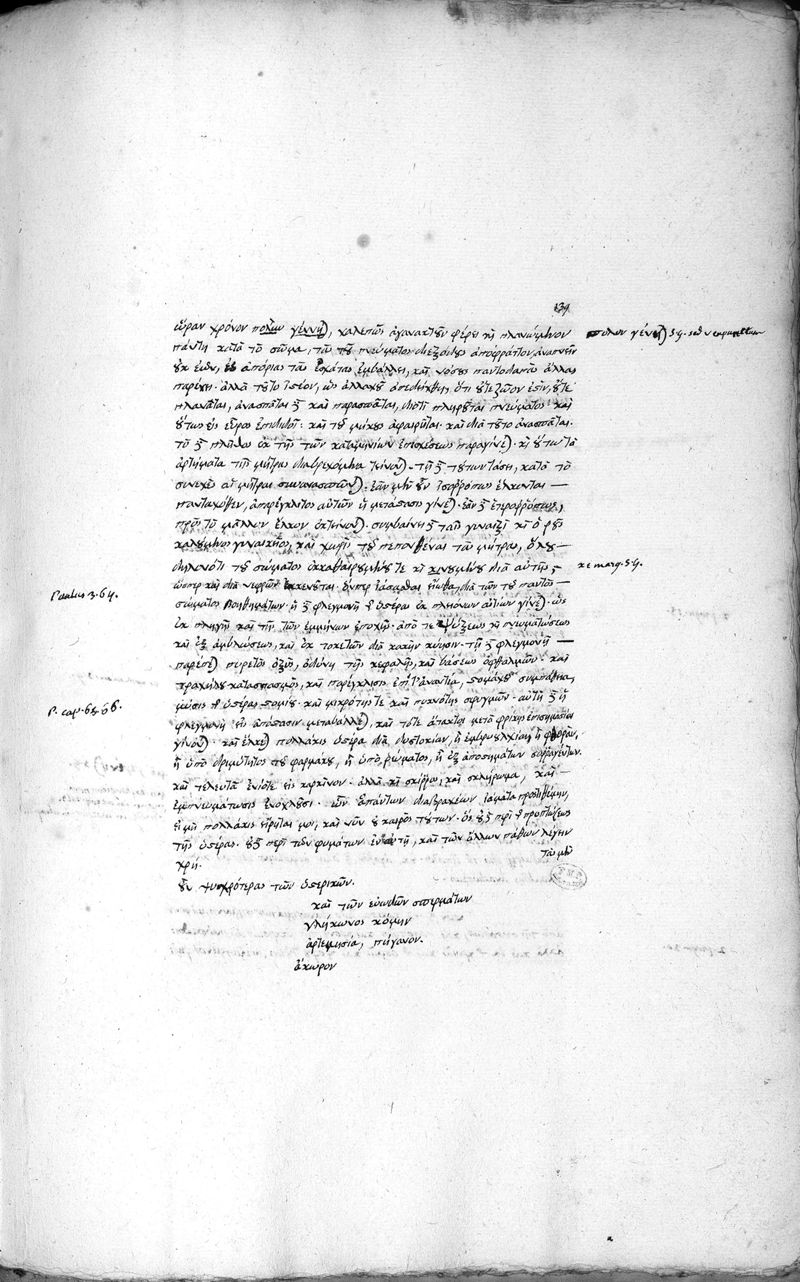 139
ὥραν χρόνον πολὺν γένηται, χαλεπῶς ἀγανακτοῦν φέρει καὶ πλανώμενον
πάντη κατὰ τὸ σῶμα, τὰς τοῦ πνεύματος διεξόδους ἀποφράττον, ἀναπνεῖν
οὐκ ἐῶν, εἰς ἀπορίας τὰς ἐσχάτας ἐμβάλλει, καὶ νόσους παντοδαπὰς ἄλλας
παρέχει. ἀλλὰ τοῦτο ἰστέον, ὡς ἀλλαχοῦ ἀπεδείχθη, ὅτι οὔτε ζῶον ἐστίν, οὔτε
πλανᾶται, ἀνασπᾶται δὲ καὶ παρασπᾶται, διότι πληροῦται πνεύματος καὶ
οὕτως εἰς εὖρος ἐπιδιδοῖ. καὶ τοῦ μήκους ἀφαιρεῖται. καὶ διὰ τοῦτο ἀνασπᾶται.
τὸ δὲ πλῆθος ἐκ τῆς τῶν καταμηνίων ἐπισχέσεως παραγίνεται. καὶ οὕτω τὰ
ἀρτήματα τῆς μήτρας διαβρεχόμενα τείνονται. τῇ δὲ τούτων τάσει, κατὰ τὸ
συνεχὲς αἱ μῆτραι συνανασπῶνται. ἐὰν μὲν οὖν ἰσορρόπως ἕλκωνται
πανταχόθεν, ἀπαρέγκλιτος αὐτῶν ἡ μετάστασις γίνεται. ἐὰν δὲ ἑτερορρόπως,
πρὸς τὸ μᾶλλον ἕλκον ἐκτείνονται. συμβαίνει δὲ ταῖς γυναιξὶ καὶ ὁ ῥοῦς
καλούμενος γυναικεῖος, καὶ χωρὶς τοῦ πεπονθέναι τὰς μήτρας, ὅλου
δηλονότι τοῦ σώματος ἐκκαθαιρομένου τε καὶ κενουμένου διὰ αὐτῆς
ὥσπερ καὶ διὰ νεφρῶν ἐκκενοῦται. ὅνπερ ἰᾶσθαι εἴωθα, διὰ τῶν τοῦ παντὸς
σώματος βοηθημάτων. ἡ δὲ φλεγμονὴ τῆς ὑστέρας ἐκ πλειόνων αἰτίων γίνεται. ὡς
ἐκ πληγῆς καὶ τῆς τῶν ἐμμήνων ἐποχῆς. ἀπό τε ψύξεως καὶ πνευματώσεως
καὶ ἐξ ἀμβλώσεως, καὶ ἐκ τοκετῶν διὰ κακὴν κύησιν. τῇ δὲ φλεγμονῇ
παρέπεται πυρετὸς ὀξύς, ὀδύνη τῆς κεφαλῆς, καὶ βάσεως ὀφθαλμῶν. καὶ
τραχήλου κατασπασμός, καὶ παρέγκλισις ἐπὶ τἀναντία, στομάχου συμπάθεια,
μύσις τῆς ὑστέρας στομίου. καὶ μικρότης τε καὶ πυκνότης σφυγμῶν. αὕτη δὲ ἡ
φλεγμονὴ εἰς ἀπόστασιν μεταβάλλεται, καὶ τότε ἄτακτοι μετὰ φρίκης ἐπισημασίαι
γίνονται. καὶ ἑλκοῦται πολλάκις ὑστέρα διὰ δυστοκίαν, ἢ ἐμβρυουλκίαν, ἢ φθοράν,
ἢ ὑπὸ δριμύτητος τοῦ φαρμάκου, ἢ ὑπὸ ῥεύματος, ἢ ἐξ ἀποστημάτων συρραγέντων.
καὶ τελευτᾷ ἐνίοτε εἰς καρκῖνον. ἀλλὰ καὶ σκίρρος, καὶ σκλήρωμα, καὶ
ἐμπνευμάτωσις ἐνοχλοῦσι. ὧν ἁπάντων διὰ βραχέων ἰάματα προστίθεμεν,
εἰ μὴ πολλάκις εἴρηταί μοι, καὶ νῦν ὁ καιρὸς τούτων. ὡς οὐδὲ περὶ τῆς προπτώσεως
τῆς ὑστέρας. οὐδὲ περὶ τῶν φυμάτων ἐν αὐτῇ, καὶ τῶν ἄλλων παθῶν λέγειν
χρή.
τὰ μὲν
οὖν ψυχρότερα τῶν ὑστερικῶν.
καὶ τῶν εὐωδῶν σπερμάτων
γλήχωνος κόμην
ἀρτεμισία, πήγανον.
ἄκωρον
Paulus 3.64.
P. cap. 65. 66.